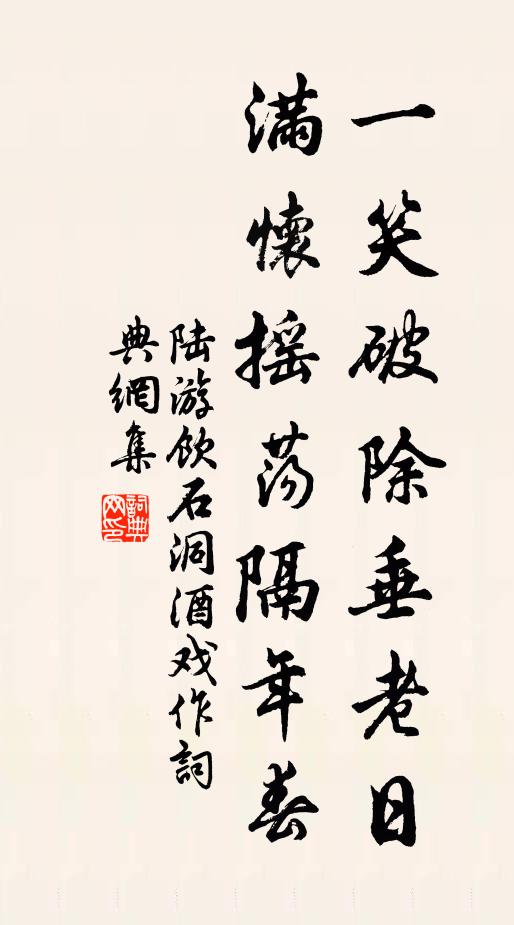 一笑破除垂老日
满怀摇荡隔年春
陆游饮石洞酒戏作詞
典網集
詞典
网印